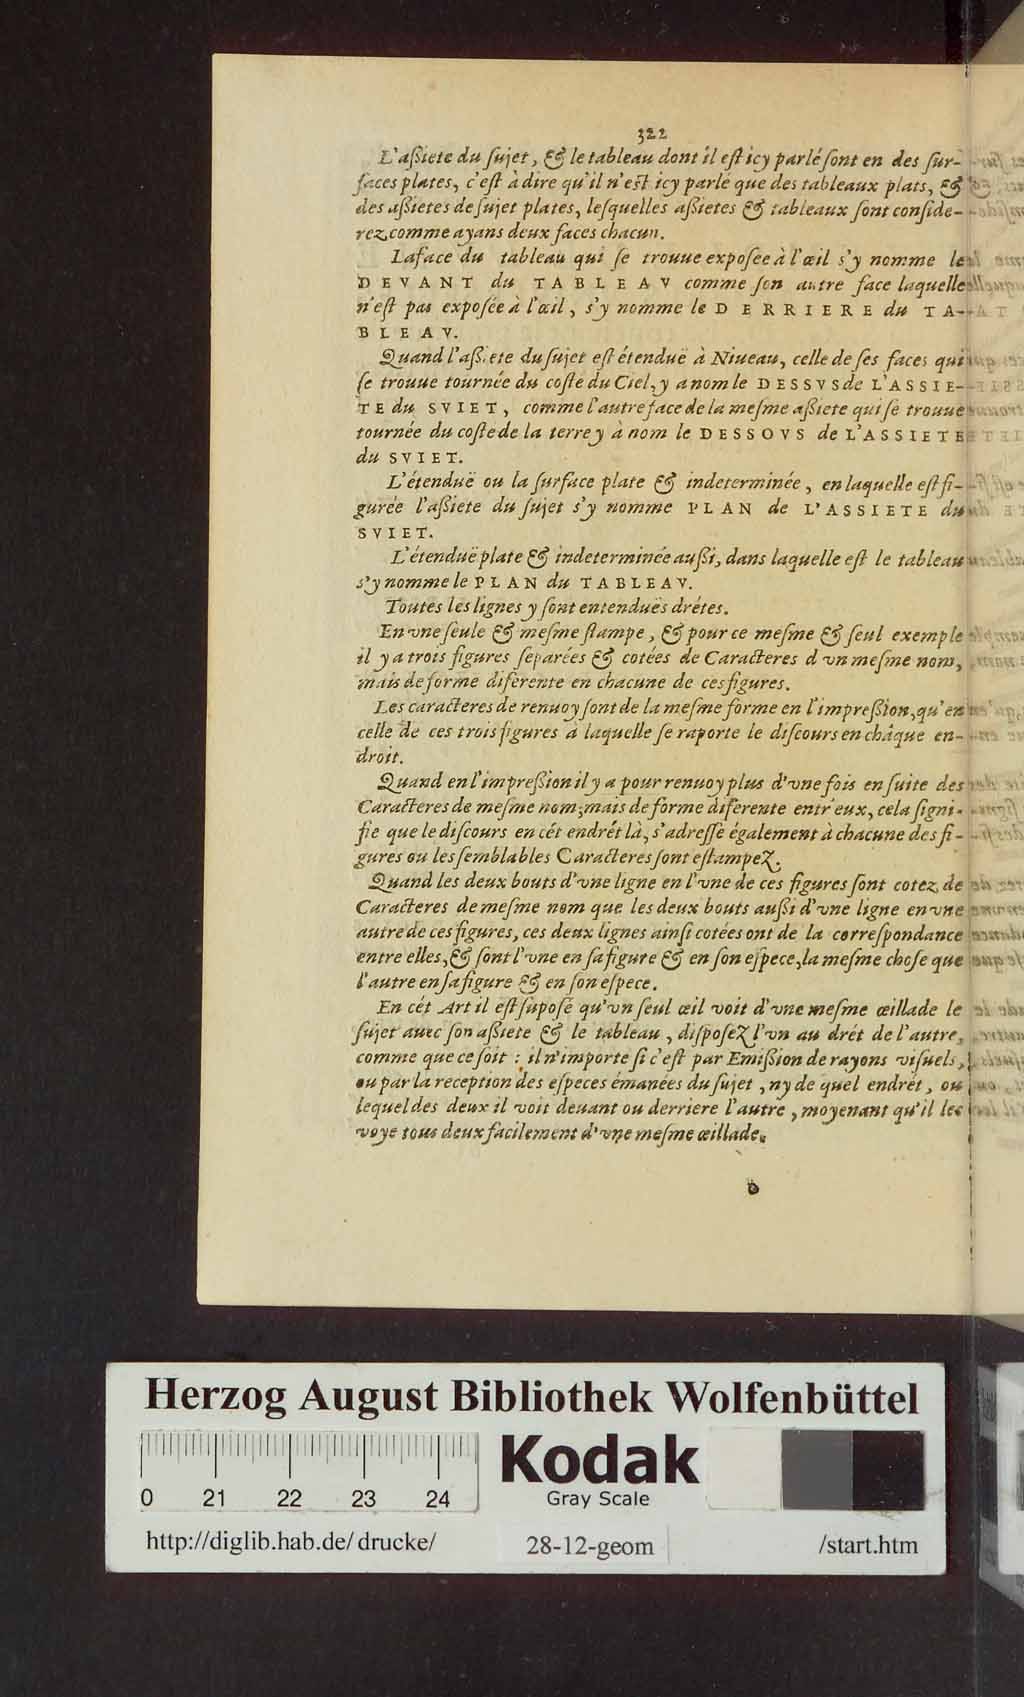 322
L'aßiete du ſujet, & le tableau dont il eſt icy parlé ſont en des ſur-
faces plates, c'eſt à dire qu'il n'eſt icy parlé que des tableaux plats, &
des aßietes de ſujet plates, leſquelles aßietes & tableaux ſont conſide-
rez comme ayans deux faces chacun.
La face du tableau qui ſe trouue expoſee à l'œil s'y nomme le
DEVANT du TABLEAV comme ſon autre face laquelle
n'eſt pas expoſée à l'œil, s'y nomme le DERRIERE du TA-
BLEAV.
Quand l'aßiete du ſujet eſt étenduë à Niueau, celle de ſes faces qui
ſe trouue tournée du coſte du Ciel, y a nom le DESSVS de L'ASSIE-
TE du SVIET, comme l'autre face de la meſme aßiete qui ſe trouue
tournée du coſte de la terre y à nom le DESSOVS de L'ASSIETE
du SVIET.
L'étenduë ou la ſurface plate & indeterminée, en laquelle eſt fi-
gurée l'aßiete du ſujet s'y nomme PLAN de L'ASSIETE du
SVIET.
L'étenduë plate & indeterminée außi, dans laquelle eſt le tableau
s'y nomme le PLAN du TABLEAV.
Toutes les lignes y ſont entenduës drétes.
En vne ſeule & meſme ſtampe, & pour ce meſme & ſeul exemple
il y a trois figures ſeparées & cotées de Caracteres d'vn meſme nom,
mais de forme diferente en chacune de ces figures.
Les caracteres de renuoy ſont de la meſme forme en l'impreßion, qu'en
celle de ces trois figures à laquelle ſe raporte le diſcours en châque en-
droit.
Quand en l'impreßion il y a pour renuoy plus d'vne fois en ſuite des
Caracteres de meſme nom; mais de forme diferente entr'eux, cela ſigni-
fie que le diſcours en cét endrét là, s'adreſſe également à chacune des fi-
gures ou les ſemblables Caracteres ſont eſtampez.
Quand les deux bouts d'vne ligne en l'vne de ces figures ſont cotez de
Caracteres de meſme nom que les deux bouts außi d'vne ligne en vne
autre de ces figures, ces deux lignes ainſi cotées ont de la correſpondance
entre elles, & ſont l'vne en ſa figure & en ſon eſpece, la meſme choſe que
l'autre en ſa figure & en ſon eſpece.
En cét Art il eſt ſupoſé qu'vn ſeul œil voit d'vne meſme œillade le
ſujet auec ſon aßiete & le tableau, diſpoſez l'vn au drét de l'autre,
comme que ce ſoit : il n'importe ſi c'eſt par Emißion de rayons viſuels,
ou par la reception des eſpeces émanées du ſujet, ny de quel endrét, ou
lequel des deux il voit deuant ou derriere l'autre, moyenant qu'il les
voye tous deux facilement d'vne meſme œillade.
Herzog August Bibliothek Wolfenbüttel
Kodak
Gray Scale
0 21 22 23 24
http://diglib.hab.de/drucke/ 28-12-geom /start.htm